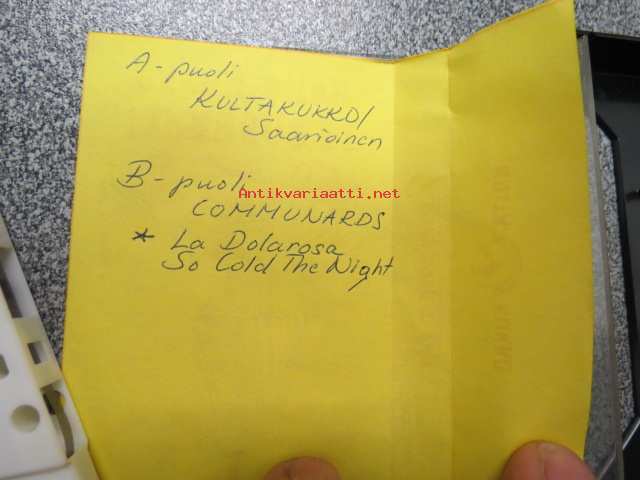 A-puoli
KULTAKUKKO/
Saarioinen
B-puoli
Antikvariaatti.net
COMMUNARDS
* La Dolarosa
So Cold The Night